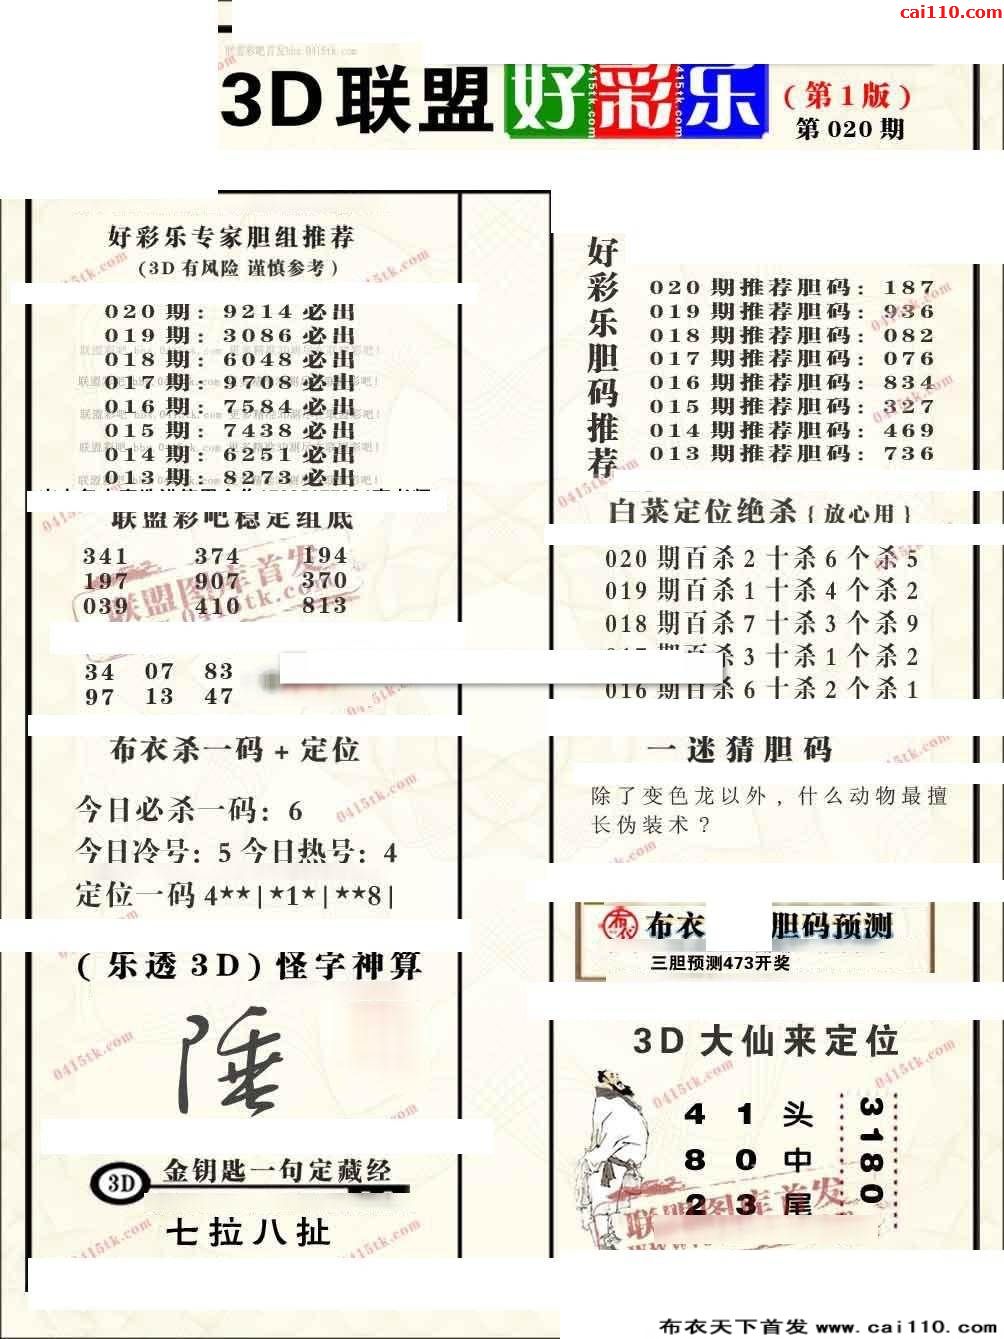 cai110.com
3D联盟好彩乐
(第1版)
第020期
好彩乐专家胆组推荐
(3D有风险 谨慎参考)
020期: 9214必出
019期: 3086必出
018期: 6048必出
017期: 9708必出
016期: 7584必出
015期: 7438必出
014期: 6251必出
013期: 8273必出
联盟彩吧稳定组底
341 374 194
197 907 370
039 410 813
34 07 83
97 13 47
布衣杀一码+定位
今日必杀一码: 6
今日冷号: 5 今日热号: 4
定位一码4**|*1*|**8|
(乐透3D)怪字神算
金钥匙一句定藏经
3D
七拉八扯
好彩乐胆码推荐
020期推荐胆码: 187
019期推荐胆码: 936
018期推荐胆码: 082
017期推荐胆码: 076
016期推荐胆码: 834
015期推荐胆码: 327
014期推荐胆码: 469
013期推荐胆码: 736
白菜定位绝杀{放心用}
020期百杀2十杀6个杀5
019期百杀1十杀4个杀2
018期百杀7十杀3个杀9
杀3十杀1个杀2
016期百杀6十杀2个杀1
一迷猜胆码
除了变色龙以外，什么动物最擅
长伪装术？
布衣 胆码预测
三胆预测473开奖
3D大仙来定位
4 1 头
8 0 中
2 3 尾
3180
联盟图库首发
0415tk.com
布衣天下首发 www.cai110.com